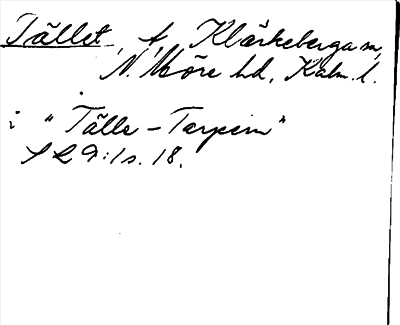 Tället, f, Klärkeberga sn,
N. Möre hd, Kalm. l.
i "Tälle-Torpien"
S L 9:1 s. 18.